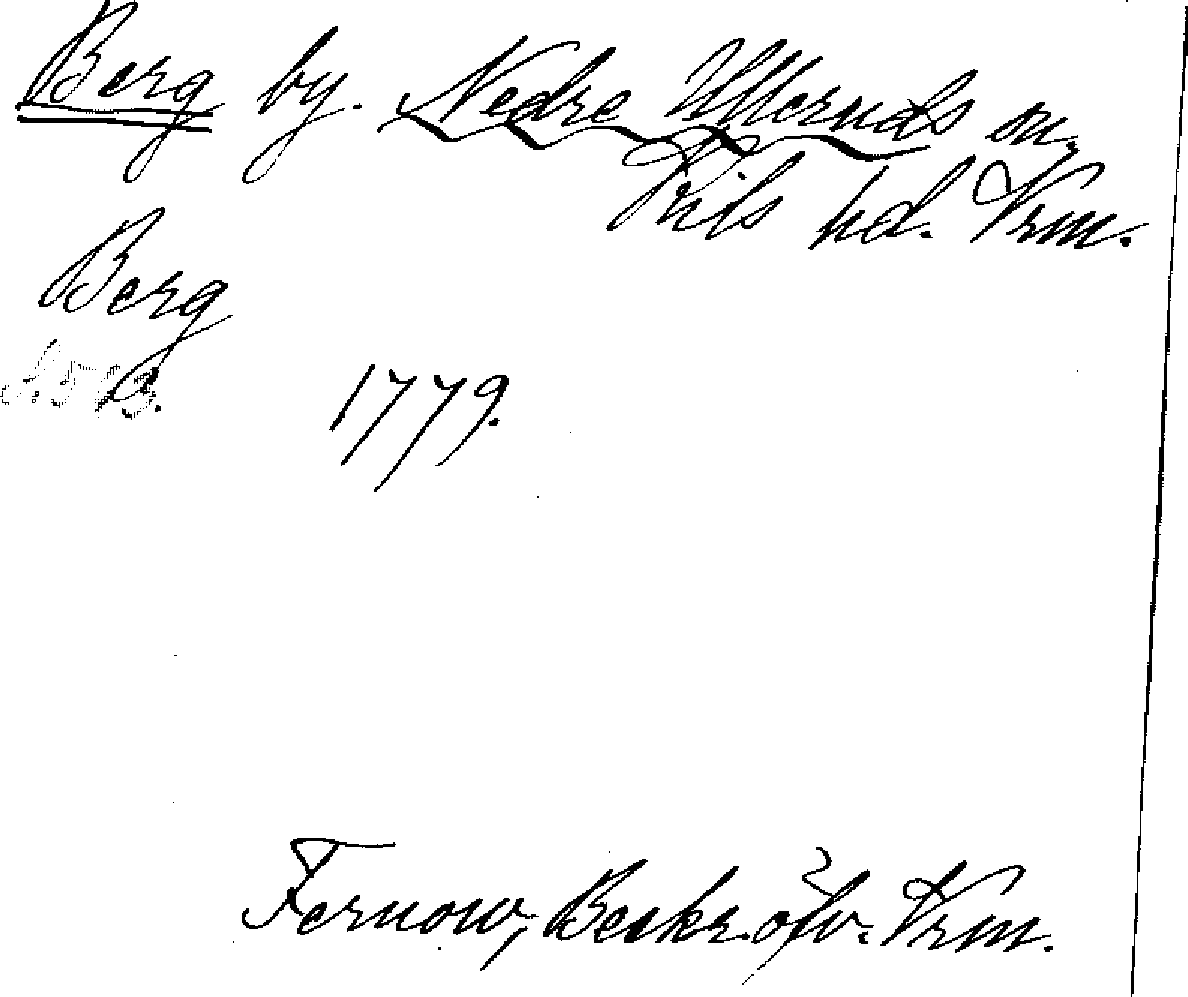 Berg by. Nedre Ulleruds sn,
Kils hd. Vrm.
Berg
1779.
Fernow, Beskr. öfv. Vrm.